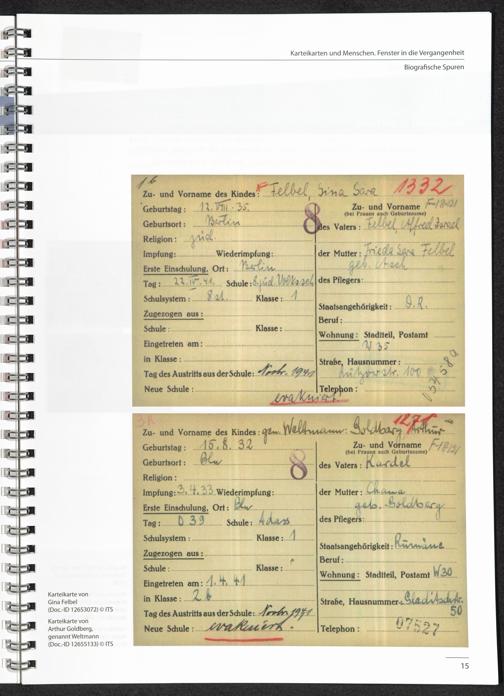 Karteikarten und Menschen. Fenster in die Vergangenheit
Biografische Spuren
1332
Zu- und Vorname des Kindes: Felbel, Gina Sara
Geburtstag: 12. VIII. 35
Zu- und Vorname
(bei Frauen auch Geburtsname)
Geburtsort: Berlin
8
des Vaters: Felbel Alfred Israel
Religion: jüd.
Impfung: Wiederimpfung:
der Mutter: Frieda Sara Felbel
geb.
Erste Einschulung, Ort: Berlin
Tag: 22. IV. 41. Schule:
des Pflegers:
Schulsystem: 8 kl. Klasse: 1
Staatsangehörigkeit: D.R.
Zugezogen aus:
Beruf:
Schule: Klasse:
Wohnung: Stadtteil, Postamt
W 35
Eingetreten am:
in Klasse:
Straße, Hausnummer:
Lützowstr. 100
Tag des Austritts aus der Schule: Novbr. 1941
Neue Schule: evakuiert
Telephon:
1271
Zu- und Vorname des Kindes: gen. Weltmann: Goldberg, Arthur
Geburtstag: 15.8.32
Zu- und Vorname
(bei Frauen auch Geburtsname)
Geburtsort: Bln
8
des Vaters: Kardel
Religion:
Impfung: 3.4.33 Wiederimpfung:
der Mutter: Chawa
geb. Goldberg
Erste Einschulung, Ort: Bln
Tag: O 39 Schule: Adass
des Pflegers:
Schulsystem: Klasse: 1
Staatsangehörigkeit: Rumäne
Zugezogen aus:
Beruf:
Schule: Klasse:
Wohnung: Stadtteil, Postamt W30
Eingetreten am: 1.4.41
in Klasse: 2b
Straße, Hausnummer:
50
Tag des Austritts aus der Schule: Novbr. 1941
Neue Schule: evakuiert.
Telephon: 07527
Karteikarte von
Gina Felbel
(Doc.-ID 12653072) © ITS
Karteikarte von
Arthur Goldberg,
genannt Weltmann
(Doc.-ID 12655133) © ITS
15